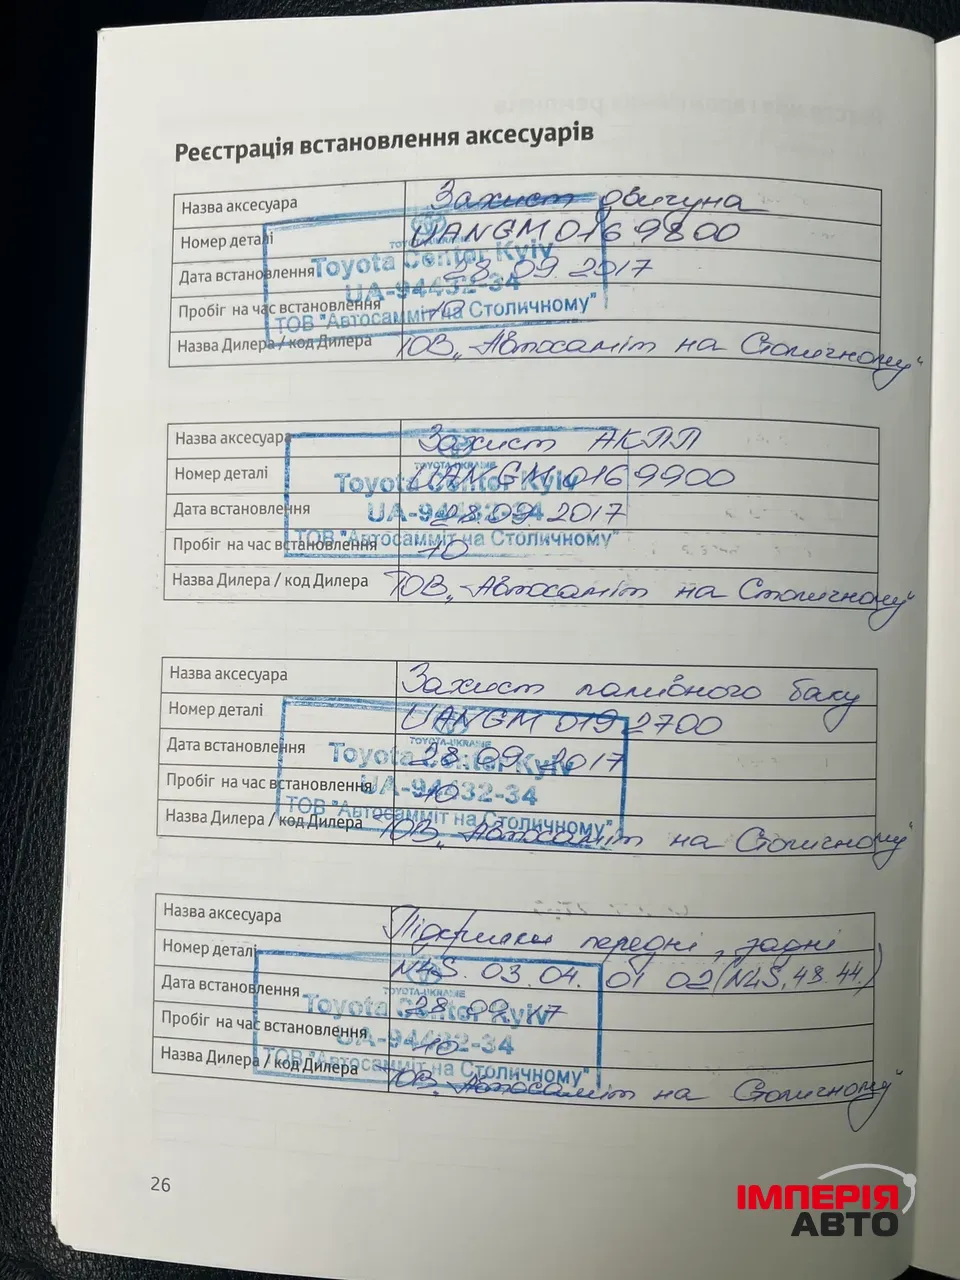 Реєстрація встановлення аксесуарів
Назва аксесуара Захист двигуна
Номер деталі UANGM0169800
Дата встановлення 28.09.2017
Пробіг на час встановлення 10
Назва Дилера / код Дилера ТОВ „Автосаміт на Столичному“
TOYOTA-UKRAINE
Toyota Center Kyiv
UA-94432-34
ТОВ "Автосамміт на Столичному"
Назва аксесуара Захист АКПП
Номер деталі UANGM0169900
Дата встановлення 28.09.2017
Пробіг на час встановлення 10
Назва Дилера / код Дилера ТОВ „Автосаміт на Столичному“
TOYOTA-UKRAINE
Toyota Center Kyiv
UA-94432-34
ТОВ "Автосамміт на Столичному"
Назва аксесуара Захист паливного баку
Номер деталі UANGM0192700
Дата встановлення 28.09.2017
Пробіг на час встановлення 10
Назва Дилера / код Дилера ТОВ „Автосаміт на Столичному“
TOYOTA-UKRAINE
Toyota Center Kyiv
UA-94432-34
ТОВ "Автосамміт на Столичному"
Назва аксесуара Підкрилки передні, задні
Номер деталі 03.04. 01 02
Дата встановлення 28.09.17
Пробіг на час встановлення 10
Назва Дилера / код Дилера ТОВ „Автосаміт на Столичному“
TOYOTA-UKRAINE
Toyota Center Kyiv
UA-94432-34
ТОВ "Автосамміт на Столичному"
26
ІМПЕРІЯ
АВТО